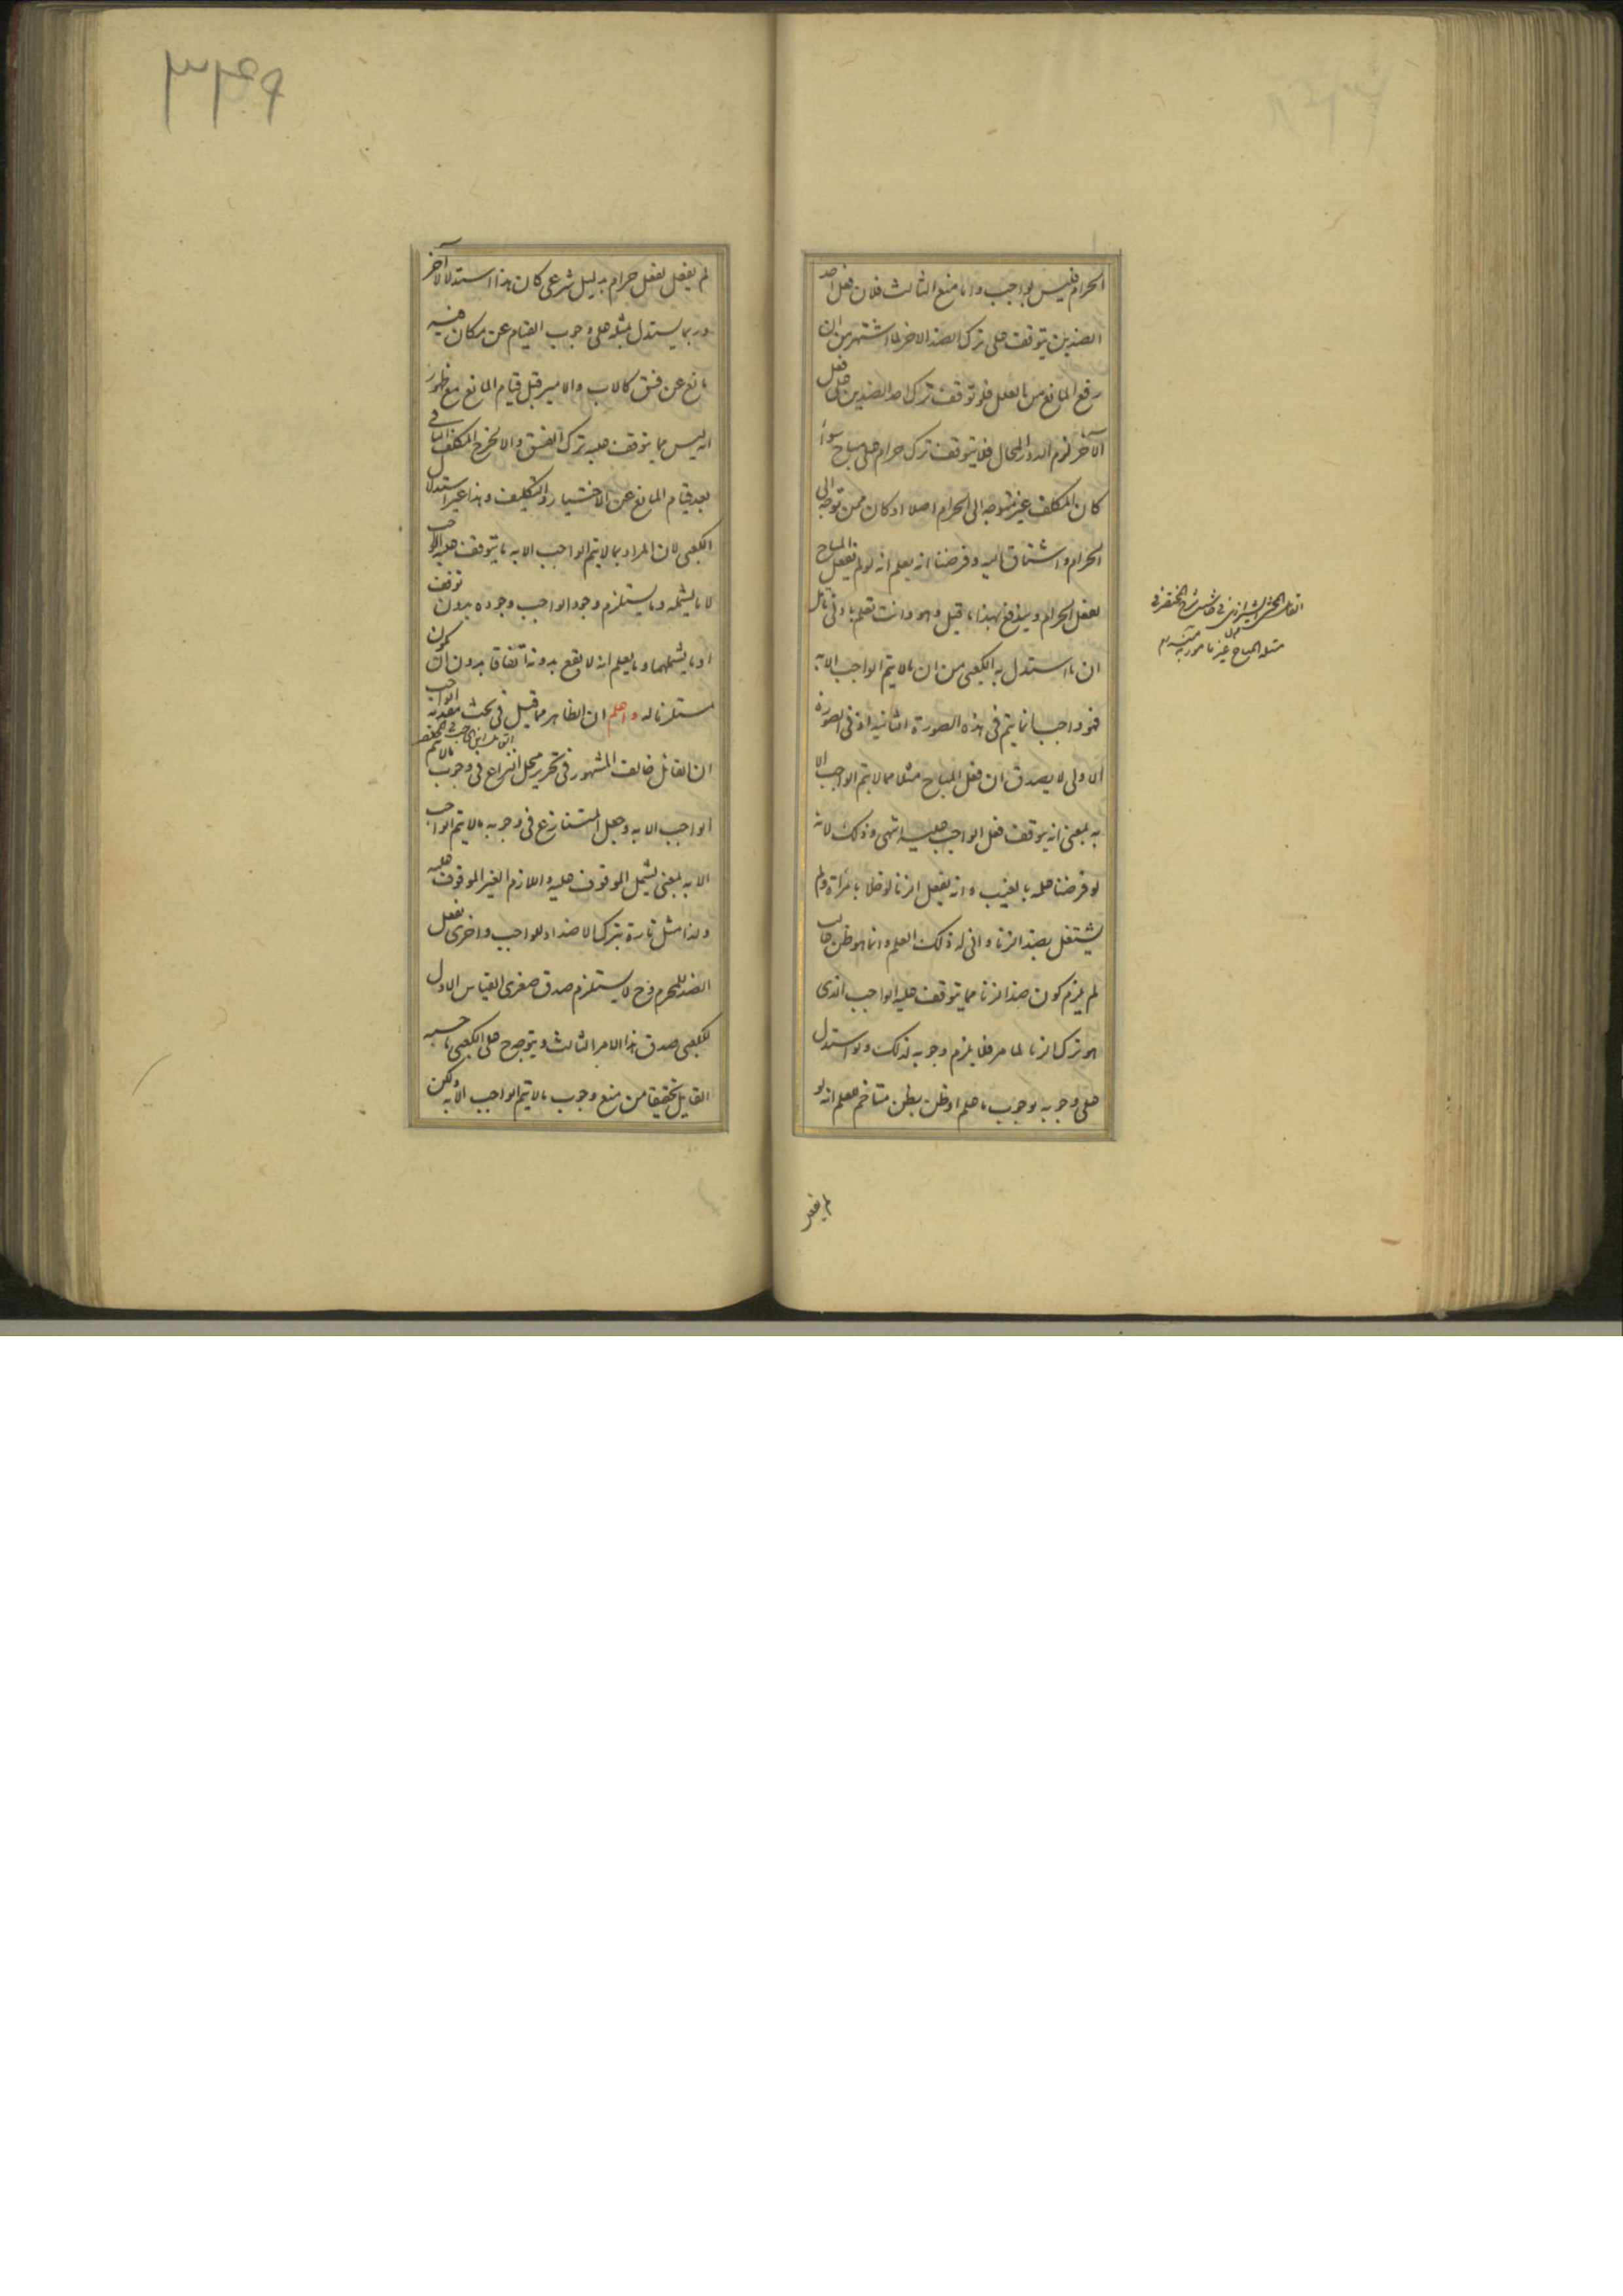 الحرام فليس بواجب واما منع الثالث فلان فعل احد
الضدين يتوقف على ترك الضد الاخر لما اشتهر من ان
رفع المانع من العلل فلو توقف ترك احد الضدين على فعل
الآخر لزم الدور المحال فلا يتوقف ترك حرام على مباح سواء
كان المكلف غير متوجه الى الحرام اصلا او كان ممن توجه الى
الحرام واشتاق اليه وفرضنا انه يعلم انه لو لم يفعل المباح
لفعل الحرام ويندفع بهذا ما قيل وهو وانت تعلم بادنى تامل
ان ما استدل به الكعبى من ان ما لا يتم الواجب الا به
فهو واجب انما يتم فى هذه الصورة الثانية اذ فى الصورة
الاولى لا يصدق ان فعل المباح مثلا مما لا يتم الواجب الا
به بمعنى انه يتوقف فعل الواجب عليه انتهى وذلك لانه
لو فرضنا علمه بالغيب وانه يفعل الزنا لو خلا بامراة ولم
يشتغل بضد الزنا وانى له ذلك العلم وانما هو ظن غالب
لم يلزم كون ضد الزنا مما يتوقف عليه الواجب الذى
هو ترك الزنا لما مر فلا يلزم وجوبه لذلك ولو استدل
على وجوبه بوجوب ما علم او ظن بظن متاخم للعلم انه لو
لم يفعل
الفاضل الشيرازى فى حاشية شرح المختصر فى
مسئلة المباح غير مامور به منه
٣٣٩
لم يفعل لفعل حرام بدليل شرعى كان هذا استدلالا آخر
وربما يستدل بمثله على وجوب القيام عن مكان فيه
مانع عن فسق كالاب والامير قبل قيام المانع مع ظهور
انه ليس مما يتوقف عليه ترك الفسق والا لخرج المكلف الباقى
بعد قيام المانع عن الاختيار والتكليف وهذا غير استدلال
الكعبى لان المراد بما لا يتم الواجب الا به ما يتوقف عليه الواجب
لا ما يشمله وما يستلزم وجود الواجب وجوده بدون توقف
او ما يشملهما وما يعلم انه لا يقع بدونه اتفاقا بدون ان يكون
مستلزما له واعلم ان الظاهر مما قيل فى بحث مقدمة الواجب
القائل ابن الحاجب فى المختصر
ان القائل خالف المشهور فى تحرير محل النزاع فى وجوب ما لا يتم
الواجب الا به وجعل المتنازع فى وجوبه ما لا يتم الواجب
الا به بمعنى يشمل الموقوف عليه واللازم الغير الموقوف عليه
ولذا مثل تارة بترك الاضداد للواجب واخرى بفعل
الضد للمحرم فح لا يستلزم صدق صغرى القياس الاول
للكعبى صدق هذا الامر الثالث ويتوجه ح على الكعبى ما حسبه
القايل تحقيقا من منع وجوب ما لا يتم الواجب الا به ولكن